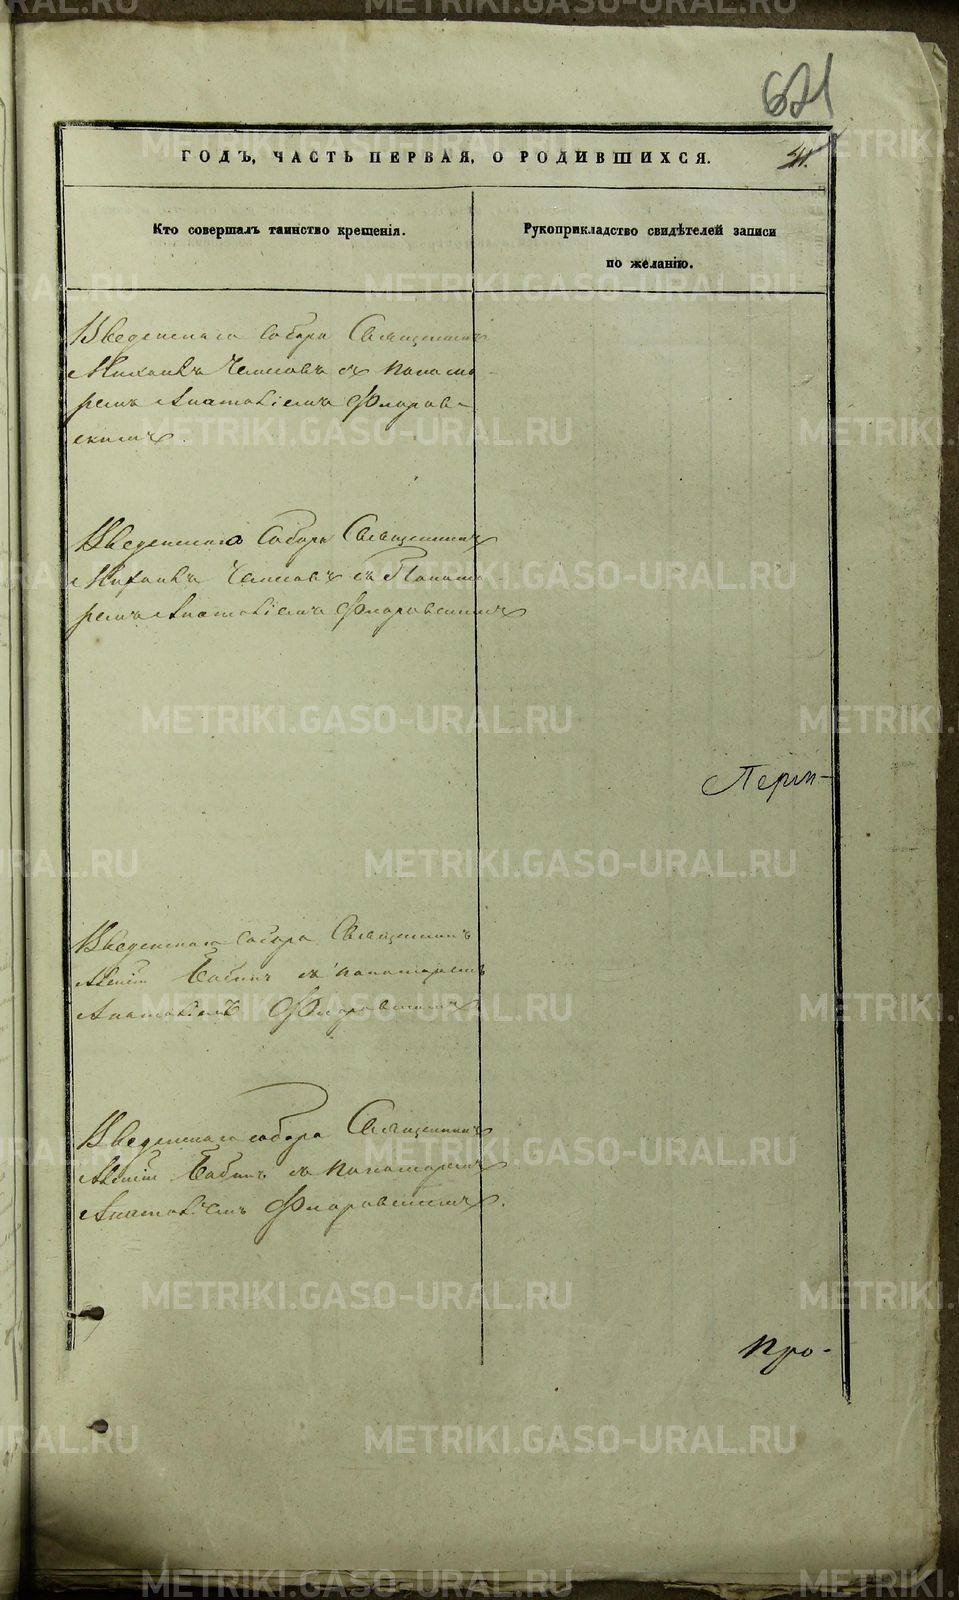 621
41.
ГОДЪ, ЧАСТЬ ПЕРВАЯ, О РОДИВШИХСЯ.
Кто совершалъ таинство крещенія.
Рукоприкладство свидѣтелей записи
по желанію.
Введенскаго собора Священникъ
Михаилъ съ понома-
ремъ Анатоліемъ Флоров-
скимъ.
Введенскаго Собора Священникъ
Михаилъ съ Понома-
ремъ Анатоліемъ Флоровскимъ
Перм-
Введенскаго собора Священникъ
Бабинъ съ пономаремъ
Анатоліемъ Флоровскимъ
Введенскаго собора Священникъ
Бабинъ съ пономаремъ
Анатоліемъ Флоровскимъ.
Про-
METRIKI.GASO-URAL.RU